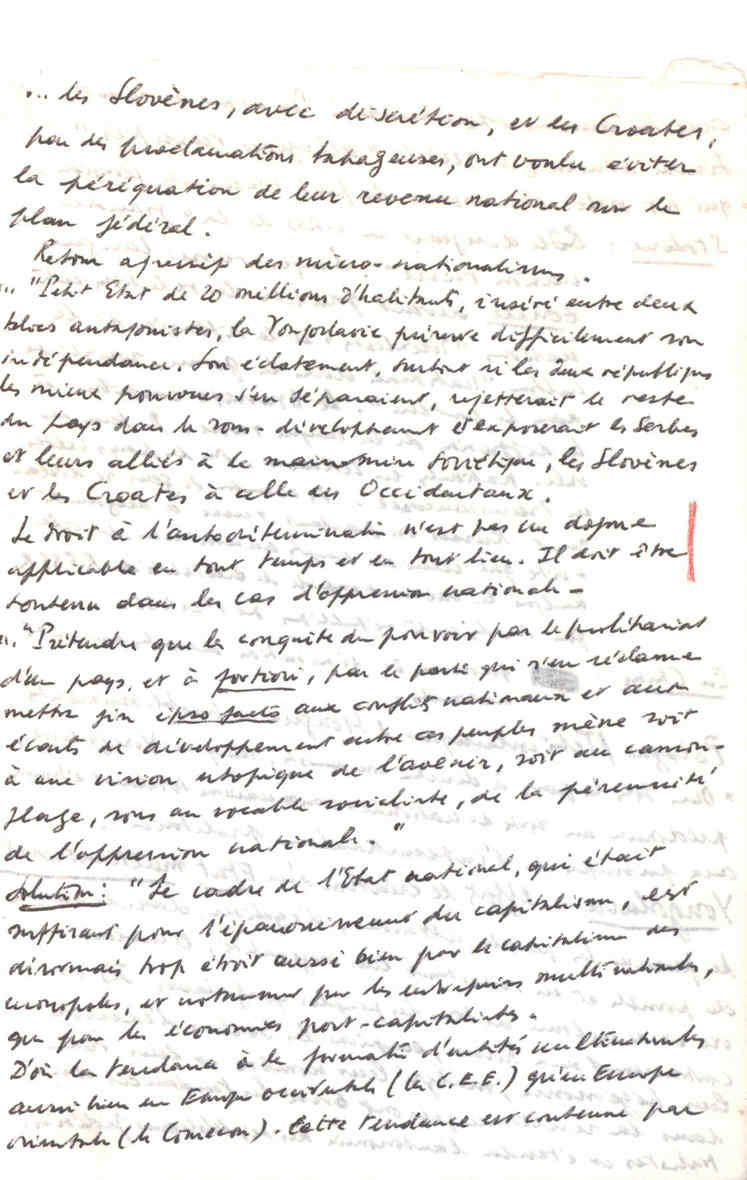 ... les Slovènes, avec discrétion, et les Croates,
par des proclamations tapageuses, ont voulu éviter
la péréquation de leur revenu national sur le
plan fédéral.
Retour agressif des micro-nationalismes.
... "Petit Etat de 20 millions d'habitants, inséré entre deux
blocs antagonistes, la Yougoslavie préserve difficilement son
indépendance. Son éclatement, surtout si les deux républiques
les mieux pourvues s'en séparaient, rejetterait le reste
du pays dans le sous-développement et exposerait les Serbes
et leurs alliés à la mainmise soviétique, les Slovènes
et les Croates à celle des Occidentaux.
Le droit à l'autodétermination n'est pas un dogme
applicable en tout temps et en tout lieu. Il doit être
soutenu dans les cas d'oppression nationale -
..."Prétendre que la conquête du pouvoir par le prolétariat
d'un pays, et à fortiori, par le parti qui s'en réclame
mettra fin ipso facto aux conflits nationaux et aux
écarts de développement entre ces peuples mène soit
à une vision utopique de l'avenir, soit au camou-
flage, sous un vocable socialiste, de la pérennité
de l'oppression nationale."
Solution: "Le cadre de l'Etat national, qui était
suffisant pour l'épanouissement du capitalisme, est
désormais trop étroit aussi bien pour le capitalisme des
monopoles, et notamment pour les entreprises multinationales,
que pour les économies post-capitalistes.
D'où la tendance à la formation d'entités multinationales
aussi bien en Europe occidentale (la C.E.E.) qu'en Europe
orientale (le Comecon). Cette tendance est contenue par